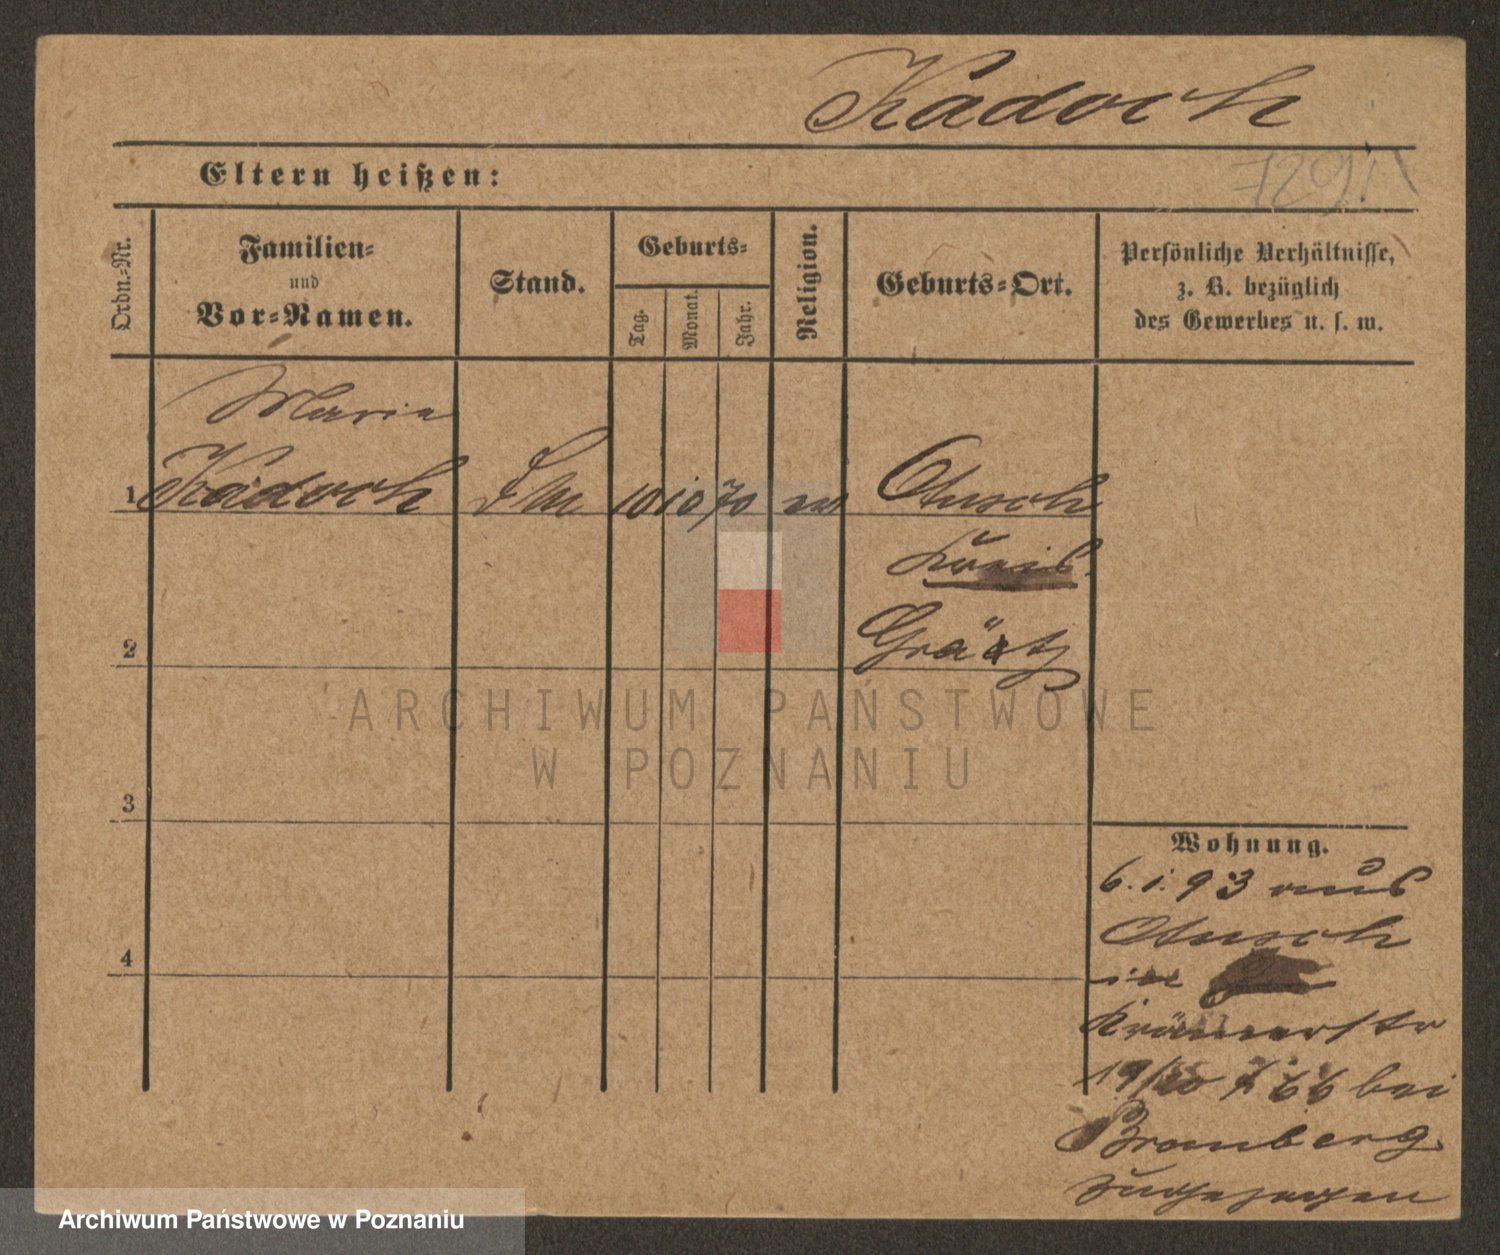 Kadoch
7291
Eltern heißen:
Ordn.-Nr.
Familien-
und
Vor-Namen.
Stand.
Geburts-
Tag.
Monat.
Jahr.
Religion.
Geburts-Ort.
Persönliche Verhältnisse,
z. B. bezüglich
des Gewerbes u. s. w.
Marie
1 Kadoch 10 10 70 Otusch
Kreis
Grätz
2
ARCHIWUM PAŃSTWOWE
W POZNANIU
3
4
Wohnung.
6.1.93 aus
Otusch
in
Krämerstr
19/20 bei
Bromberg
zugezogen
Archiwum Państwowe w Poznaniu